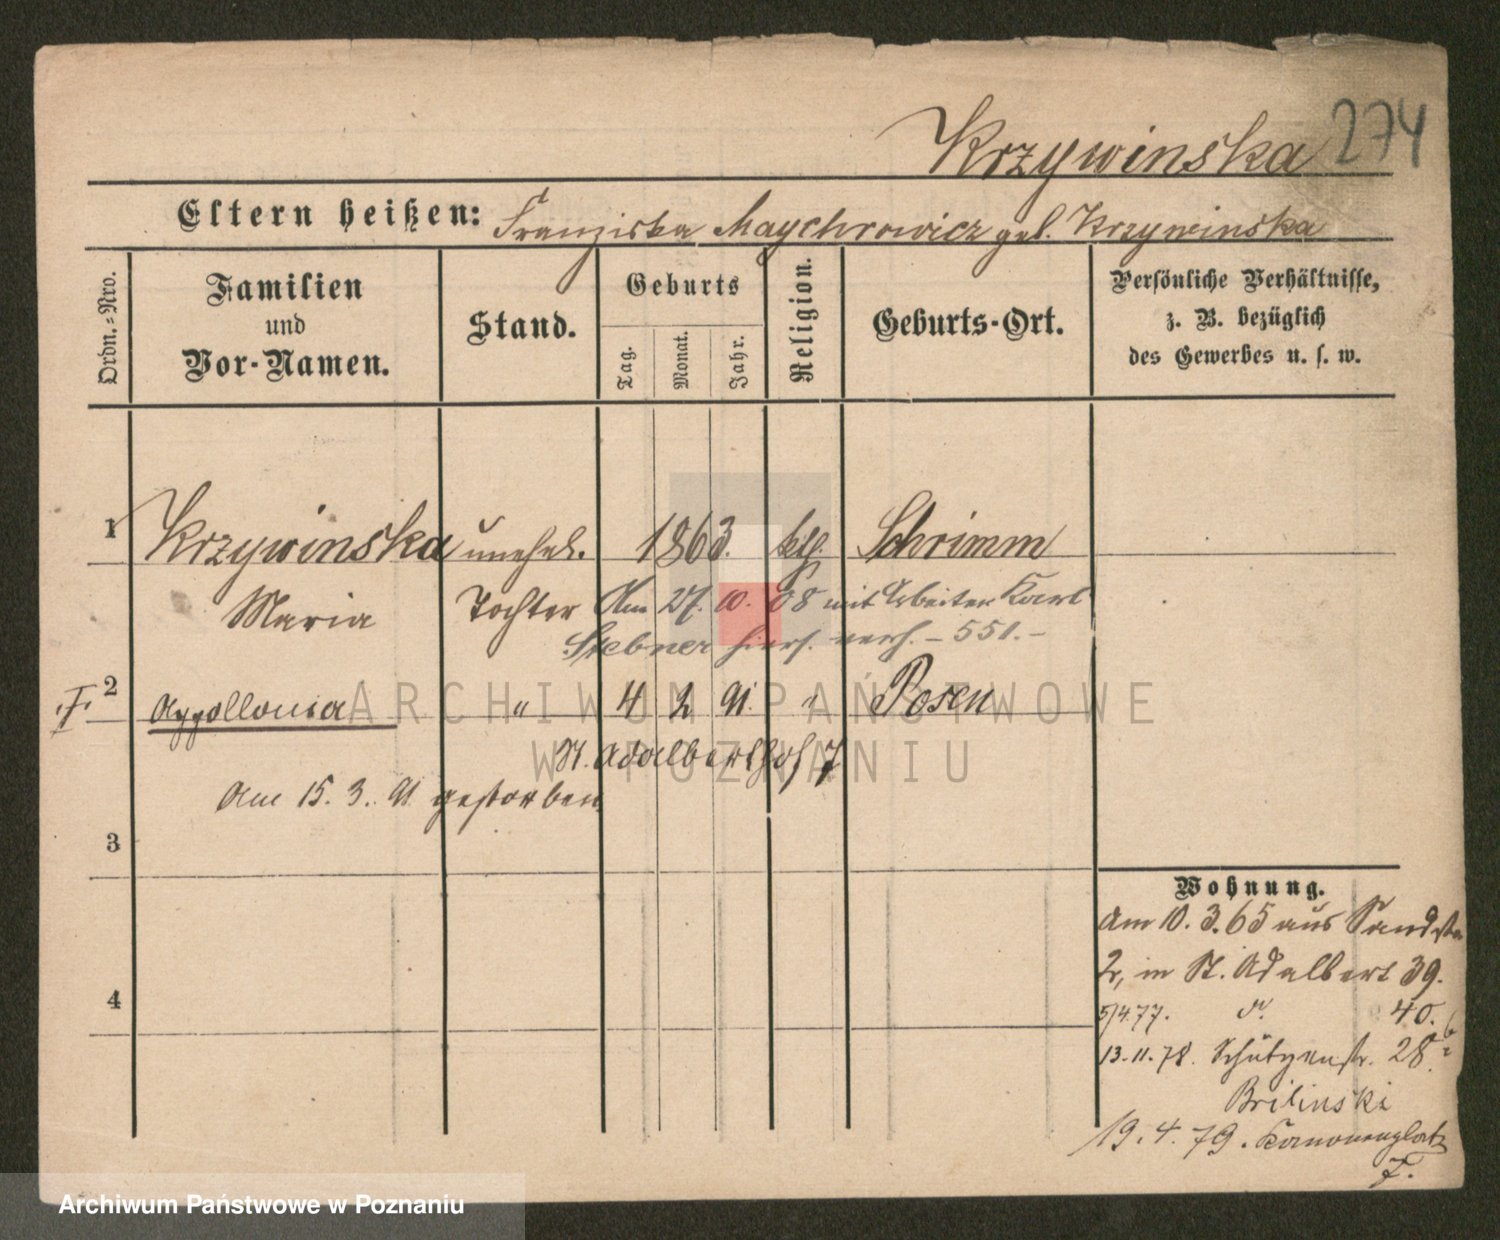 Krzywinska 274
Eltern heißen: Franziska Maychrowicz geb. Krzywinska
Ordn.=Nro.
Familien
und
Vor-Namen.
Stand.
Geburts
Tag.
Monat.
Jahr.
Religion.
Geburts-Ort.
Persönliche Verhältnisse,
z. B. bezüglich
des Gewerbes u. s. w.
1 Krzywinska unehel. 1863. kth. Schrimm
Maria Tochter Am 27. 10. 08 mit Arbeiter Karl
Stebner hiers. verh. – 551. –
2 Appollonia " 4 2 91. " Posen
St. Adalberthof 7
Am 15. 3. 91 gestorben
3
4
Wohnung.
Am 10. 3. 65 aus Sandstr
2, in St. Adalbert 39.
5/4.77. do. 40.
13.11.78. Schützenstr. 28.
Brilinski
19. 4. 79. Kanonenplatz
7.
ARCHIWUM PAŃSTWOWE
W POZNANIU
Archiwum Państwowe w Poznaniu